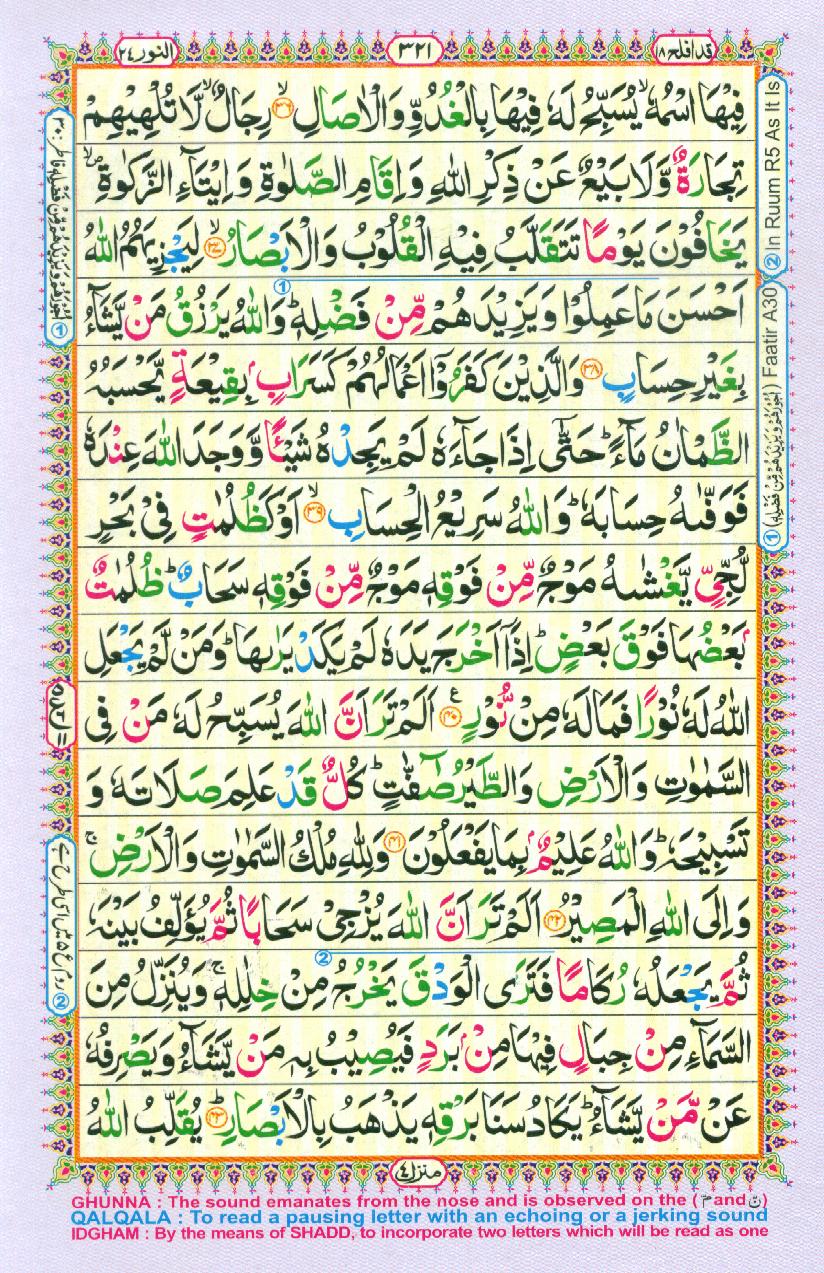 النور ٢٤
٣٢١
قد افلح ١٨
فِيْهَا اسْمُهٗ ۙ يُسَبِّحُ لَهٗ فِيْهَا بِالْغُدُوِّ وَالْاٰصَالِ ۙ﴿۳۶﴾ رِجَالٌ ۙ لَّا تُلْهِيْهِمْ
تِجَارَةٌ وَّلَا بَيْعٌ عَنْ ذِكْرِ اللّٰهِ وَاِقَامِ الصَّلٰوةِ وَاِيْتَآءِ الزَّكٰوةِ ۙ
يَخَافُوْنَ يَوْمًا تَتَقَلَّبُ فِيْهِ الْقُلُوْبُ وَالْاَبْصَارُ ۙ﴿۳۷﴾ لِيَجْزِيَهُمُ اللّٰهُ
اَحْسَنَ مَا عَمِلُوْا وَيَزِيْدَهُمْ مِّنْ فَضْلِهٖ ؕ وَاللّٰهُ يَرْزُقُ مَنْ يَّشَآءُ
بِغَيْرِ حِسَابٍ ﴿۳۸﴾ وَالَّذِيْنَ كَفَرُوْۤا اَعْمَالُهُمْ كَسَرَابٍۭ بِقِيْعَةٍ يَّحْسَبُهُ
الظَّمْاٰنُ مَآءً ؕ حَتّٰۤى اِذَا جَآءَهٗ لَمْ يَجِدْهُ شَيْـًٔا وَّوَجَدَ اللّٰهَ عِنْدَهٗ
فَوَفّٰىهُ حِسَابَهٗ ؕ وَاللّٰهُ سَرِيْعُ الْحِسَابِ ۙ﴿۳۹﴾ اَوْ كَظُلُمٰتٍ فِيْ بَحْرٍ
لُّجِّيٍّ يَّغْشٰىهُ مَوْجٌ مِّنْ فَوْقِهٖ مَوْجٌ مِّنْ فَوْقِهٖ سَحَابٌ ؕ ظُلُمٰتٌۢ
بَعْضُهَا فَوْقَ بَعْضٍ ؕ اِذَاۤ اَخْرَجَ يَدَهٗ لَمْ يَكَدْ يَرٰىهَا ؕ وَمَنْ لَّمْ يَجْعَلِ
اللّٰهُ لَهٗ نُوْرًا فَمَا لَهٗ مِنْ نُّوْرٍ ﴿۴۰﴾ اَلَمْ تَرَ اَنَّ اللّٰهَ يُسَبِّحُ لَهٗ مَنْ فِي
السَّمٰوٰتِ وَالْاَرْضِ وَالطَّيْرُ صٰٓفّٰتٍ ؕ كُلٌّ قَدْ عَلِمَ صَلَاتَهٗ وَ
تَسْبِيْحَهٗ ؕ وَاللّٰهُ عَلِيْمٌۢ بِمَا يَفْعَلُوْنَ ﴿۴۱﴾ وَلِلّٰهِ مُلْكُ السَّمٰوٰتِ وَالْاَرْضِ ۚ
وَاِلَى اللّٰهِ الْمَصِيْرُ ﴿۴۲﴾ اَلَمْ تَرَ اَنَّ اللّٰهَ يُزْجِيْ سَحَابًا ثُمَّ يُؤَلِّفُ بَيْنَهٗ
ثُمَّ يَجْعَلُهٗ رُكَامًا فَتَرَى الْوَدْقَ يَخْرُجُ مِنْ خِلٰلِهٖ ۚ وَيُنَزِّلُ مِنَ
السَّمَآءِ مِنْ جِبَالٍ فِيْهَا مِنْۢ بَرَدٍ فَيُصِيْبُ بِهٖ مَنْ يَّشَآءُ وَيَصْرِفُهٗ
عَنْ مَّنْ يَّشَآءُ ؕ يَكَادُ سَنَا بَرْقِهٖ يَذْهَبُ بِالْاَبْصَارِ ؕ﴿۴۳﴾ يُقَلِّبُ اللّٰهُ
منزل ٤
② In Ruum R5 As It Is
① (اُجُوْرَهُمْ وَيَزِيْدَهُمْ مِّنْ فَضْلِهٖ) Faatir A30
GHUNNA : The sound emanates from the nose and is observed on the (مّ and نّ)
QALQALA : To read a pausing letter with an echoing or a jerking sound
IDGHAM : By the means of SHADD, to incorporate two letters which will be read as one